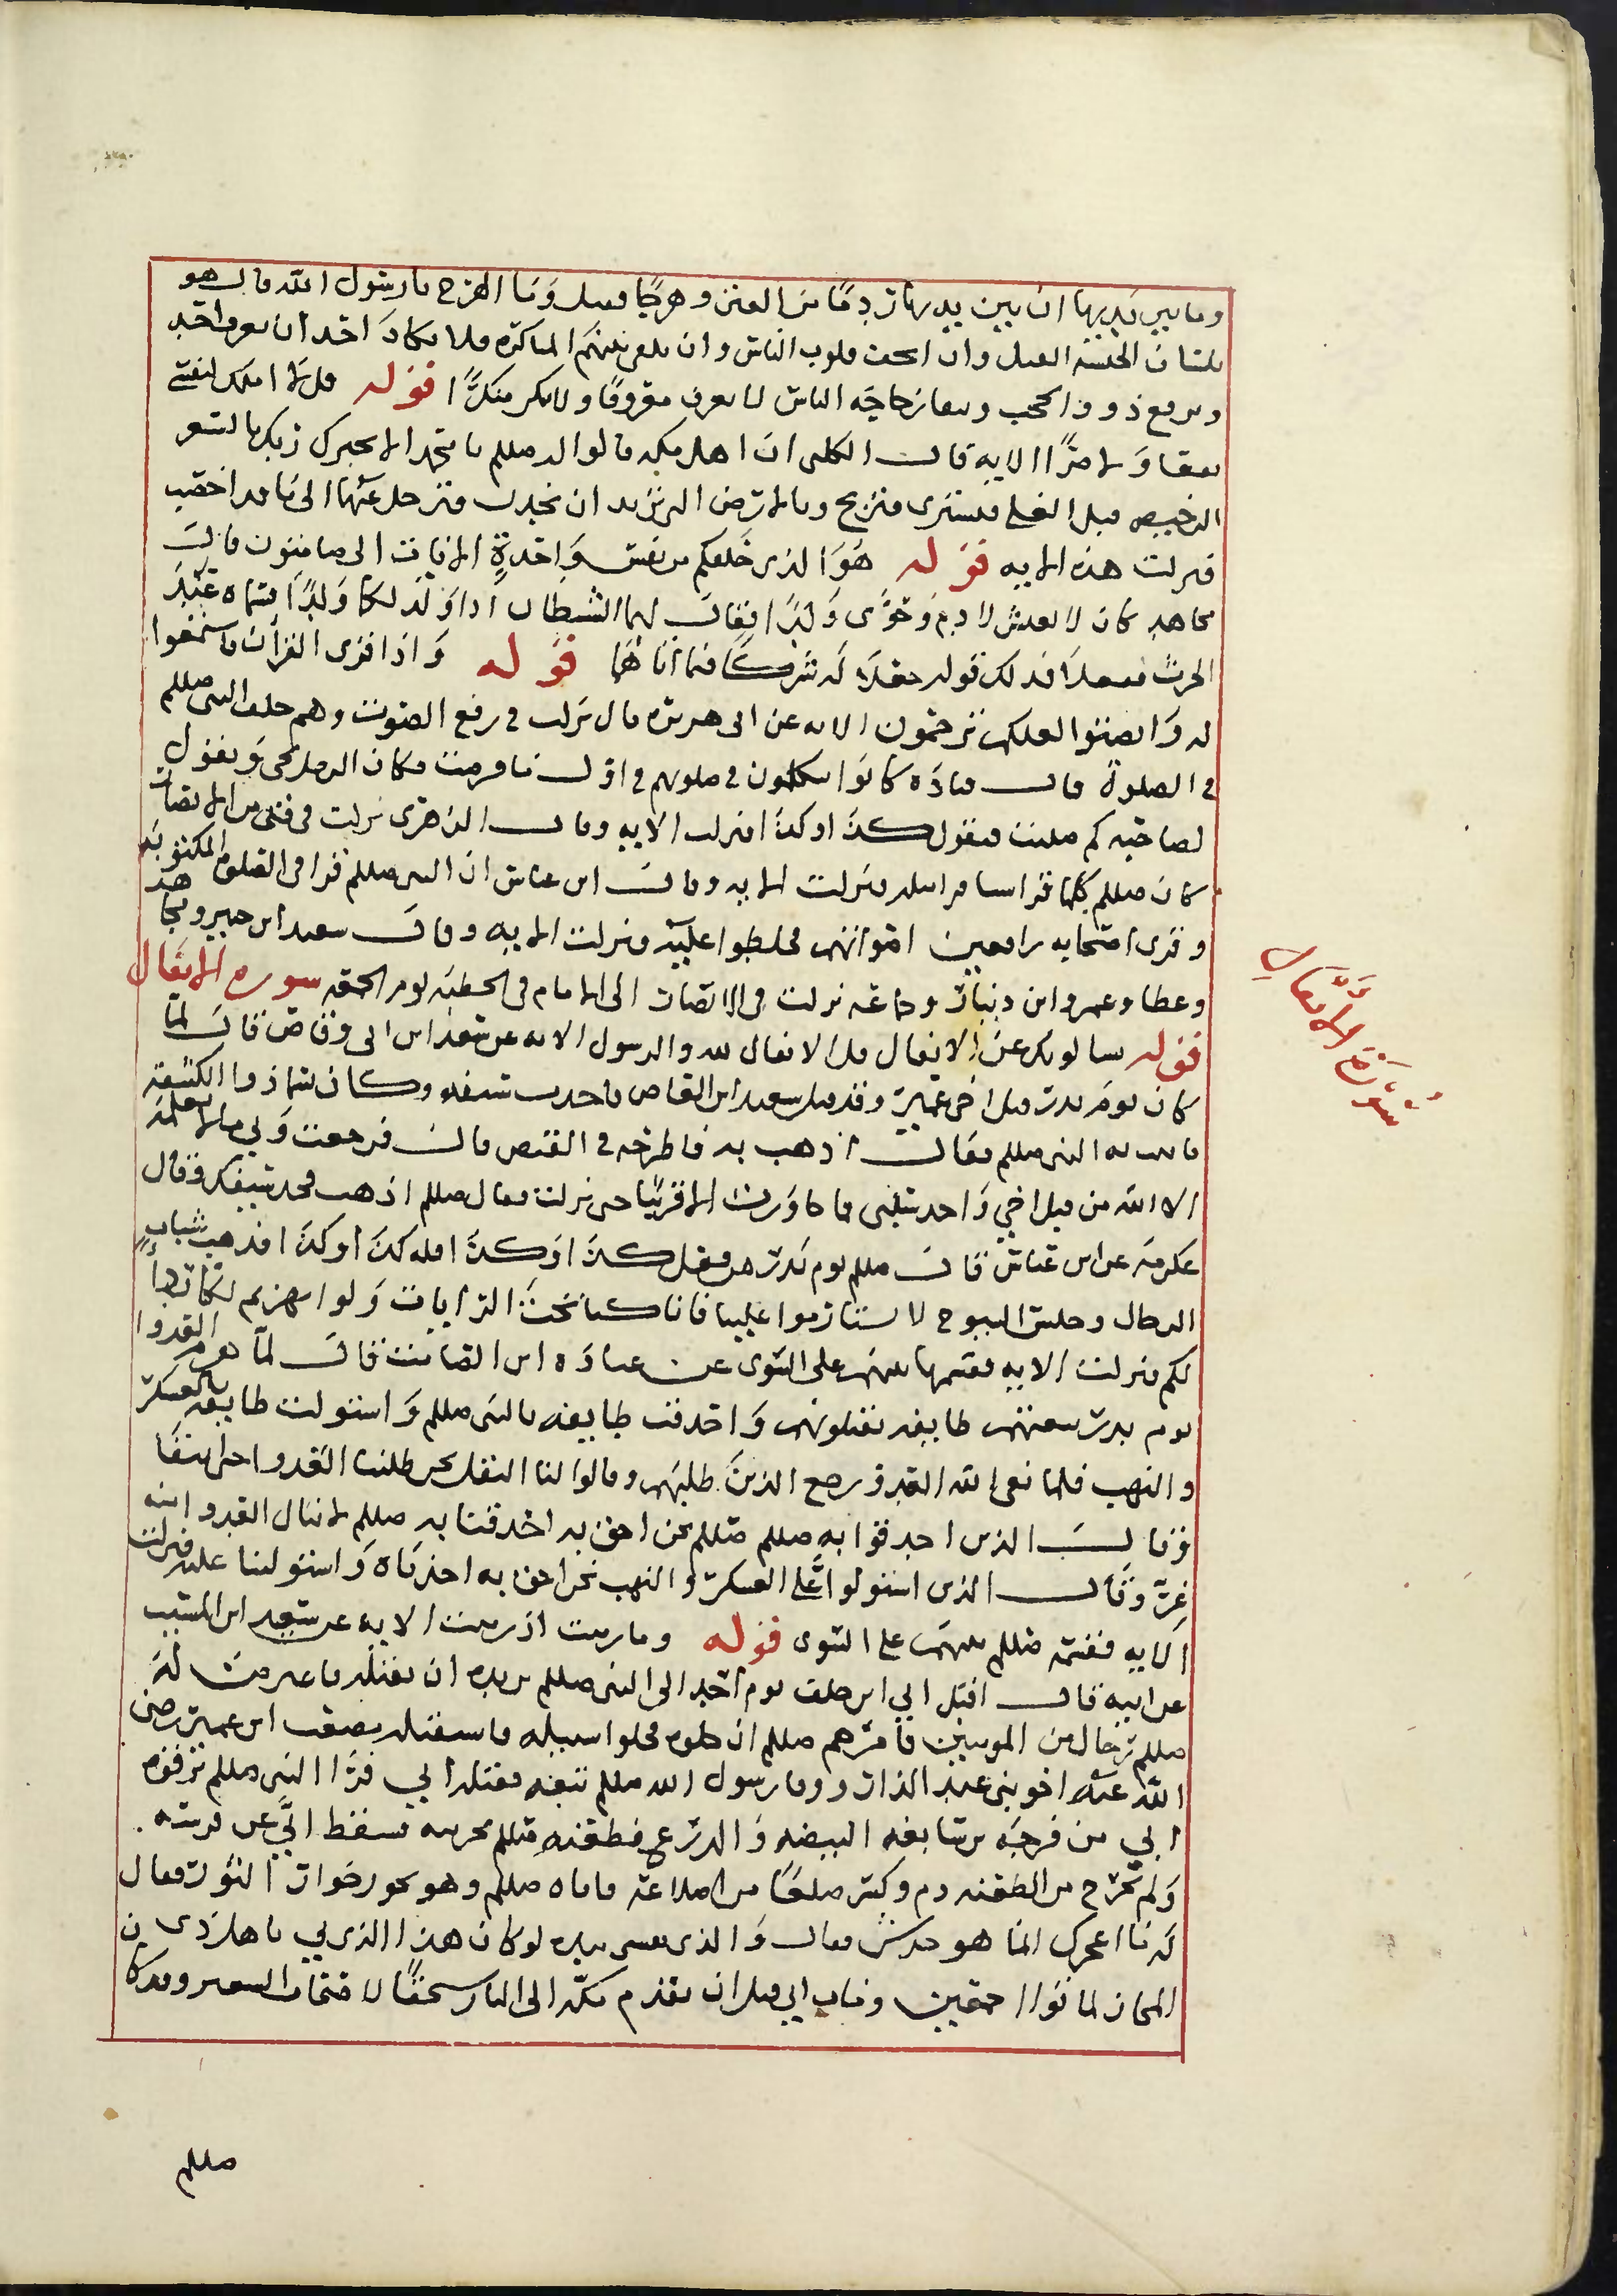 وما بين يديها ان بين يديها ردما من الفتن وهرجا فقيل وما الهرج يا رسول الله قال هو
بلسان الحبشة القتل وان تجف قلوب الناس وان يلقى بينهم المناكرة فلا يكاد احد ان يعرف احد
ويرفع ذووا الحجى ويبقا رجاجة الناس لا يعرف معروفا ولا ينكر منكرا قوله قل لا املك لنفسي
نفعا ولا ضرا الاية قال الكلبي ان اهل مكة قالوا له صللم يا محمد الا يخبرك ربك بالسعر
الرخيص قبل الغلا فتشتري فتربح وبالارض التي تريد ان تجدب فترحل عنها الى ما قد اخصب
فنزلت هذه الاية قوله هو الذي خلقكم من نفس واحدة الايات الى صامتون قال
مجاهد كان لا يعيش لادم وحوى ولد فقال لهما الشيطان اذا ولد لكما ولد فسماه عبد
الحرث ففعلا فذلك قوله جعلا له شركا فيما اتاهما قوله واذا قرى القران فاستمعوا
له وانصتوا لعلكم ترحمون الاية عن ابي هريرة قال نزلت في رفع الصوت وهم خلف النبي صللم
في الصلوة قال قتادة كانوا يتكلمون في صلوتهم في اول ما فرضت فكان الرجل يجى ويقول
لصاحبه كم صليت فيقول كذا وكذا فنزلت الاية وقال الزهري نزلت في فتى من الانصار
كان صللم كلما قرا شيا قرا فنزلت الاية وقال ابن عباس ان النبي صللم قرا في الصلوة المكتوبة
وقرى اصحابه رافعين اصواتهم فخلطوا عليه فنزلت الاية وقال سعيد ابن جبير ومجاهد
وعطا وعمرو ابن دينار وجماعة نزلت في الانصات الى الامام في الخطبة يوم الجمعة سورة الانفال
قوله يسالونك عن الانفال قل الانفال لله والرسول الاية عن سعد ابن ابي وقاص قال لما
كان يوم بدر قتل اخي عمير وقتل سعيد ابن العاص فاخذت سيفه وكان يسما ذو الكتيفة
فاتيت به النبي صللم فقال اذهب به فاطرحه في القبض قال فرجعت وبي ما لا يعلمه
الا الله من قتل اخي واخذ سلبي فما جاوزت الا قريبا حتى نزلت فقال صللم اذهب فخذ سيفك وقال
عكرمة عن ابن عباس قال صللم يوم بدر من فعل كذا وكذا فله كذا وكذا فذهب شباب
الرجال وجلس الشيوخ لا تستاثروا علينا فانا كنا تحت الرايات ولو انهزمتم لكنا ردءا
لكم فنزلت الاية فقسمها بينهم على السوى عن عبادة ابن الصامت قال لما هزم العدو
يوم بدر تبعتهم طايفة يقتلونهم واحدقت طايفة بالنبي صللم واستولت طايفة بالعسكر
والنهب فلما نفى الله العدو ورجع الذين طلبهم وقالوا لنا النفل نحن طلبنا العدو
وقال الذين احدقوا به صللم نحن احق به احدقنا به صللم لا ينال العدو منه
غرة وقال الذين استولوا على العسكر والنهب نحن احق به اخذناه واستولينا عليه فنزلت
الاية فقسمه صللم بينهم على السوى قوله وما رميت اذ رميت الاية عن سعيد ابن المسيب
عن ابيه قال اقبل ابي ابن خلف يوم احد الى النبي صللم يريده ان يقتله فاعترض له
صللم رجال من المومنين فامرهم صللم ان خلوه فخلوا سبيله فاستقبله مصعب ابن عمير رضى
الله عنه اخو بني عبد الدار ورسول الله صللم فقتله ابي فرا النبي صللم ترقوة
ابي من فرجة من سابغة البيضة والدرع فطعنه صللم بحربته فسقط ابي عن فرسه
ولم يخرج من الطعنة دم وكسر ضلعا من اضلاعه فاتاه صللم وهو يخور خوار الثور فقال
له ما اعجزك انما هو خدش فقال والذي نفسي بيده لو كان هذا الذي بي باهل ذي
المجاز لماتوا اجمعين ومات ابي قبل ان يقدم مكة الى النار سحقا لاصحاب السعير وقد كا
سورة الانفال
صللم